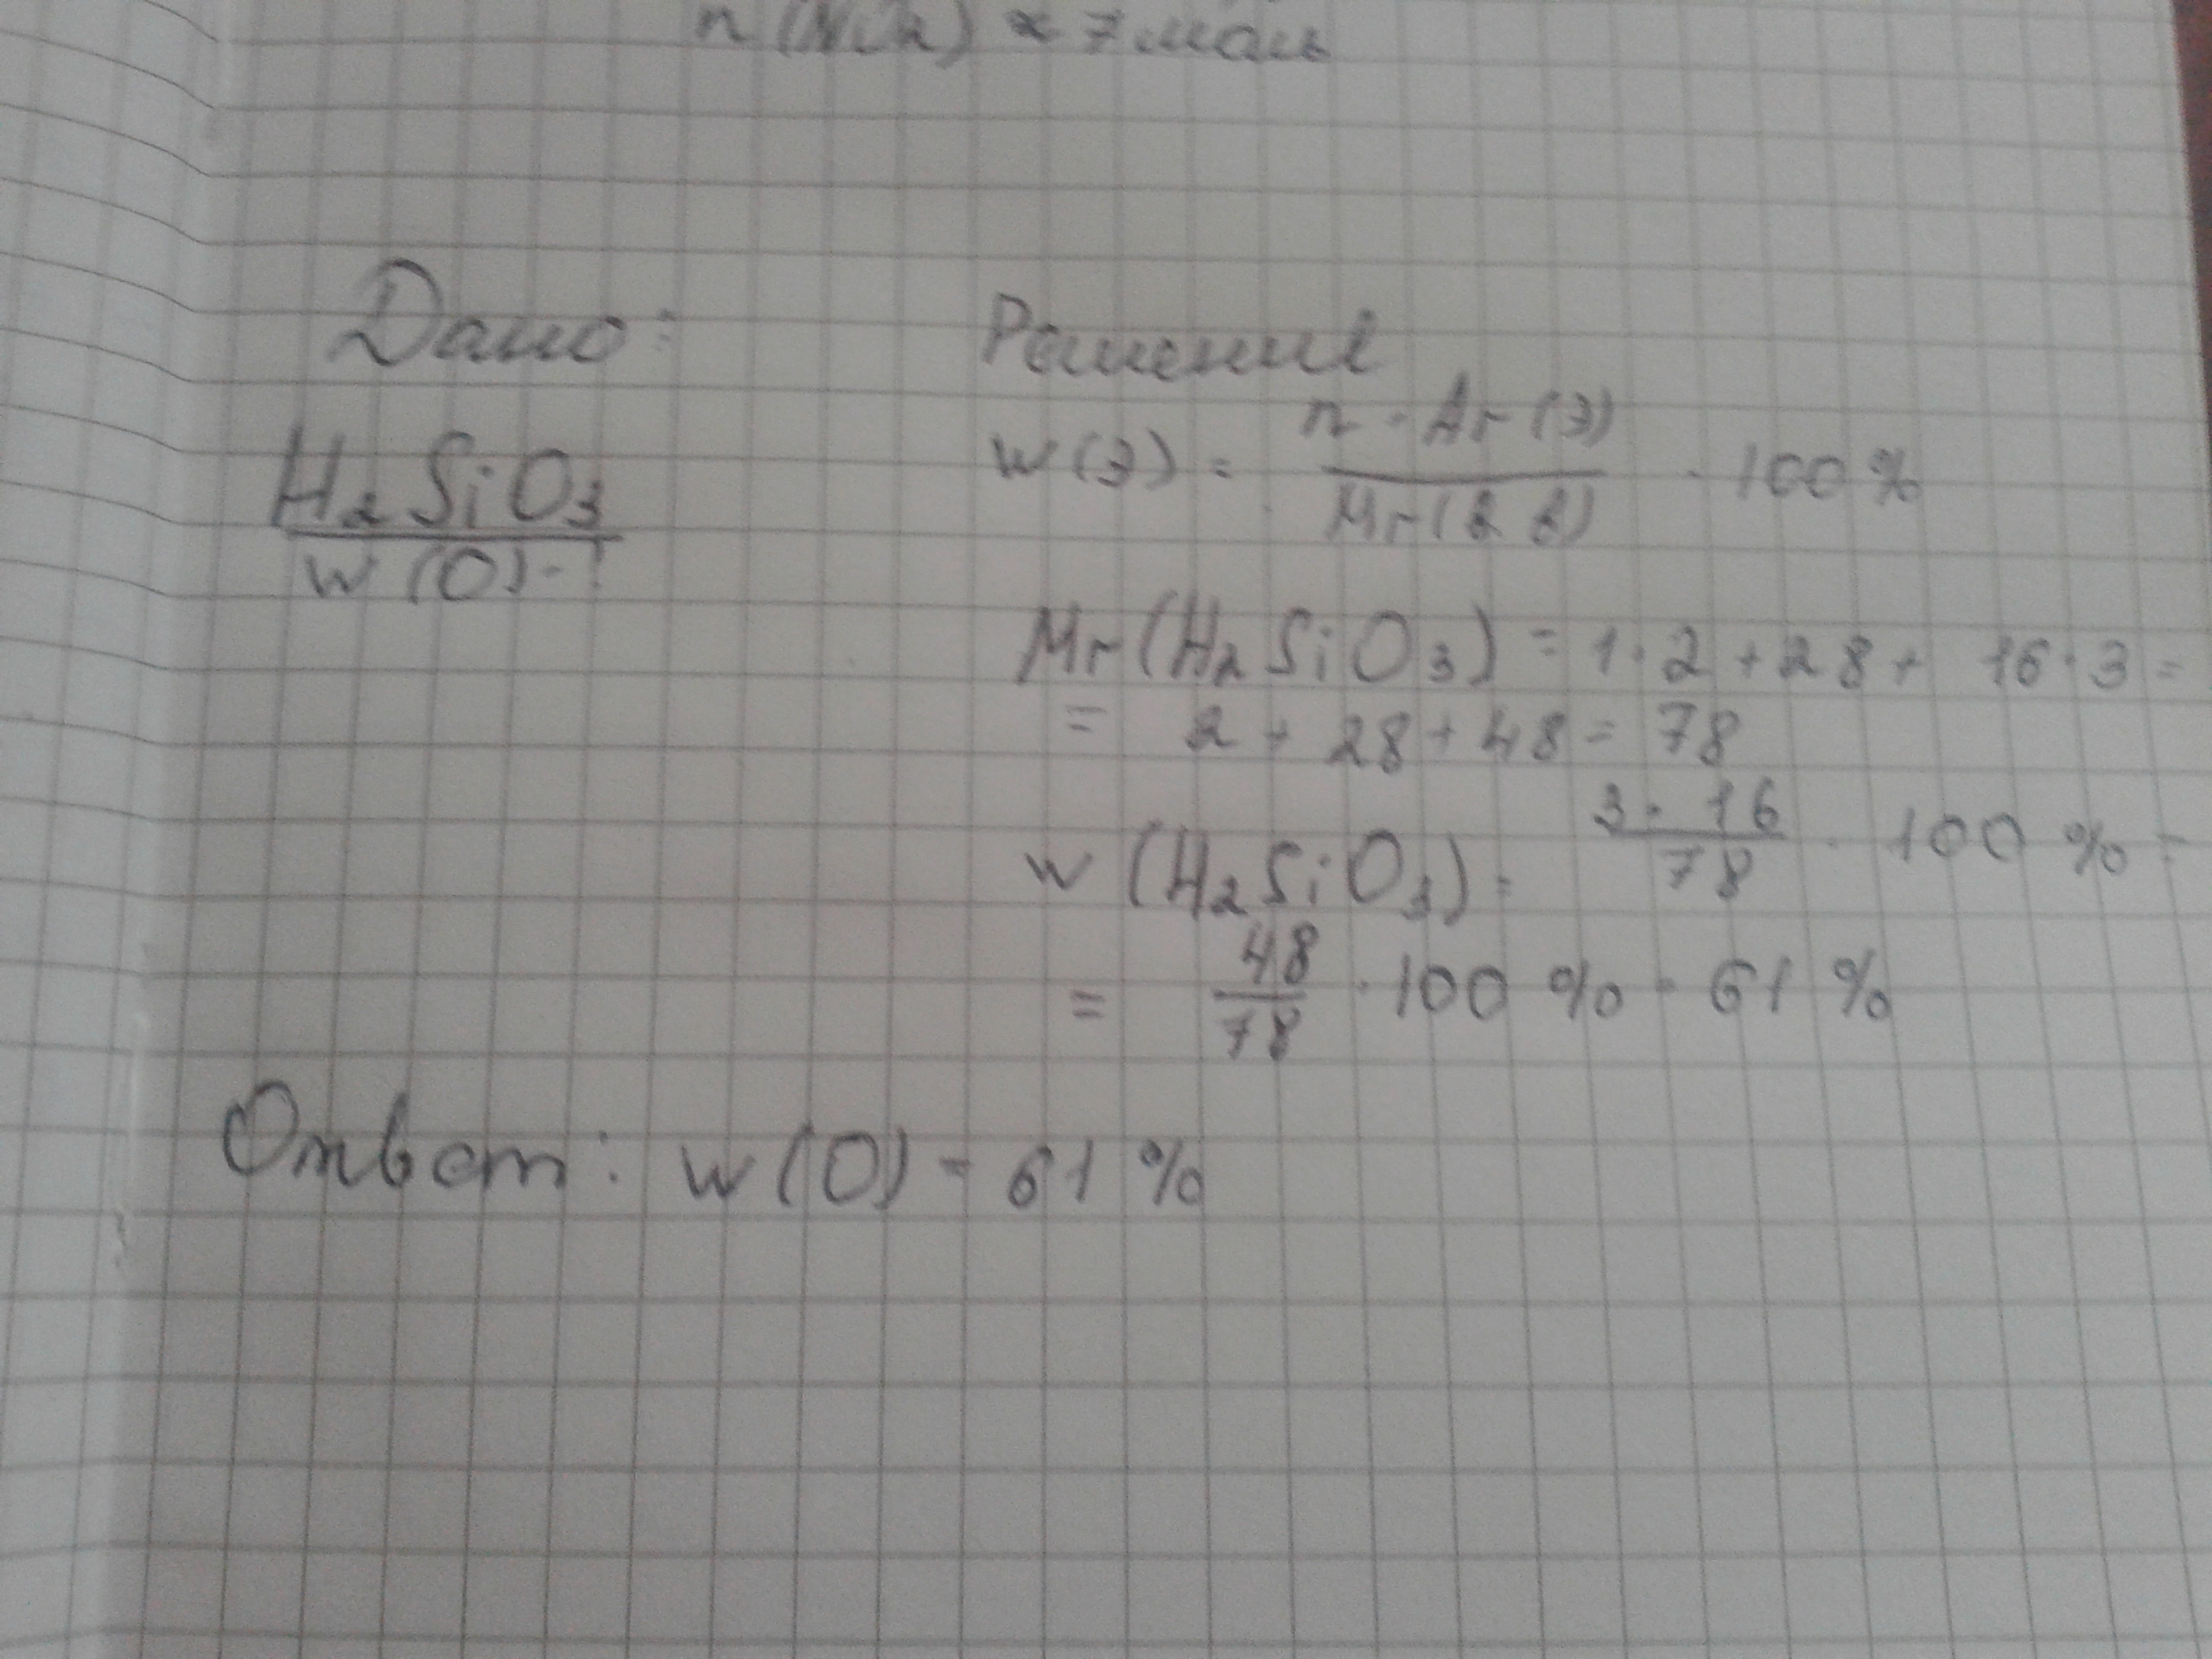 ≈ 7 моль
Дано:
Решение
H₂SiO₃
w(O)-?
w(Э) = n · Ar(Э) / Mr(В В) · 100 %
Mr(H₂SiO₃) = 1 · 2 + 28 + 16 · 3 =
= 2 + 28 + 48 = 78
w(H₂SiO₃) = 3 · 16 / 78 · 100 % =
= 48 / 78 · 100 % = 61 %
Ответ: w(O) = 61 %